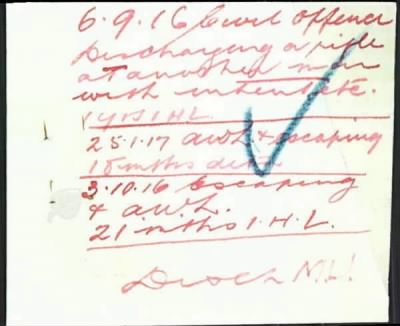 6.9.16 Civil Offence
Discharging a rifle
at another man
with intent etc.
1 yr I.H.L.
25.1.17 AWL & escaping
18 mths detn
3.10.16 Escaping
& A.W.L.
21 mths I.H.L.
Disch